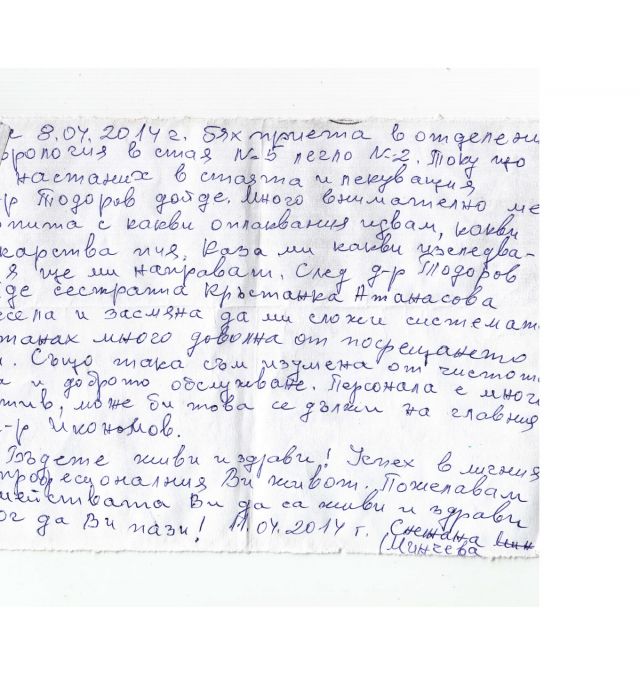 е 8.04.2014 г. бях приета в отделени
врология в стая №5 легло №2. Току що
настаних в стаята и лекуващия
р Тодоров дойде. Много внимателно ме
опита с какви оплаквания идвам, какви
карства пия. Каза ми какви изследва-
я ще ми направят. След д-р Тодоров
де сестрата Кръстанка Атанасова
есела и засмяна да ми сложи системат
станах много доволна от посрещането
и. Също така съм изумена от чистот
а и доброто обслужване. Персонала е много
тив, може би това се дължи на главния
-р Икономов.
Бъдете живи и здрави! Успех в личния
професионалния Ви живот. Пожелавам
мействата Ви да са живи и здрави
ог да Ви пази! 11.04.2014 г. Снежана
(Минчева